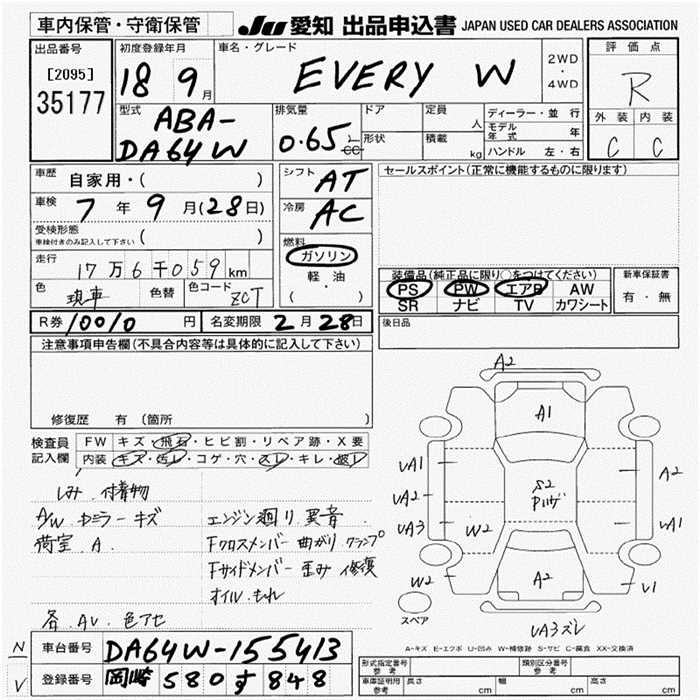 車内保管・守衛保管
JU 愛知 出品申込書 JAPAN USED CAR DEALERS ASSOCIATION
出品番号
[2095]
35177
初度登録年月
18 9月
車名・グレード
EVERY W
2WD
・
4WD
評価点
R
外装 内装
C C
型式
ABA-
DA64W
排気量
0.65
cc
ドア
形状
定員
人
積載
kg
ディーラー・並行
モデル年式 年
ハンドル 左・右
車歴
自家用・( )
車検
7年9月(28日)
受検形態
車検付きのみ記入して下さい ( )
走行
17万6千059km
色
現車
色替
色コード
ZCT
シフト
AT
冷房
AC
燃料
ガソリン
軽・油
( ・ )
セールスポイント(正常に機能するものに限ります)
装備品(純正品に限り○をつけてください)
PS PW エアB AW
SR ナビ TV カワシート
新車保証書
有・無
後日品
R券 10010 円 名変期限 2月28日
注意事項申告欄(不具合内容等は具体的に記入して下さい)
修復歴 有(箇所
検査員
記入欄
FW キズ・飛石・ヒビ割・リペア跡・X要
内装 キズ・汚レ・コゲ・穴・スレ・キレ・破レ
しみ.付着物
A/W.ドミラーキズ
荷室.A.
エンジン廻り異音.
Fクロスメンバー曲がりクランプ
Fサイドメンバー歪み修復
オイルもれ
各AU.色アセ
A2
A1
UA1
UA2
UA3
W2
W2
S2
A2
A2
UA1
U1
スペア
UA3ズレ
A-キズ E-エクボ U-凹み W-補修跡 S-サビ C-腐食 XX-交換済
N
V
車台番号 DA64W-155413
登録番号 岡崎 580 す 848
形式指定番号
参考
類別区分番号
参考
車庫証明用
参考
長さ cm 幅 cm 高さ cm